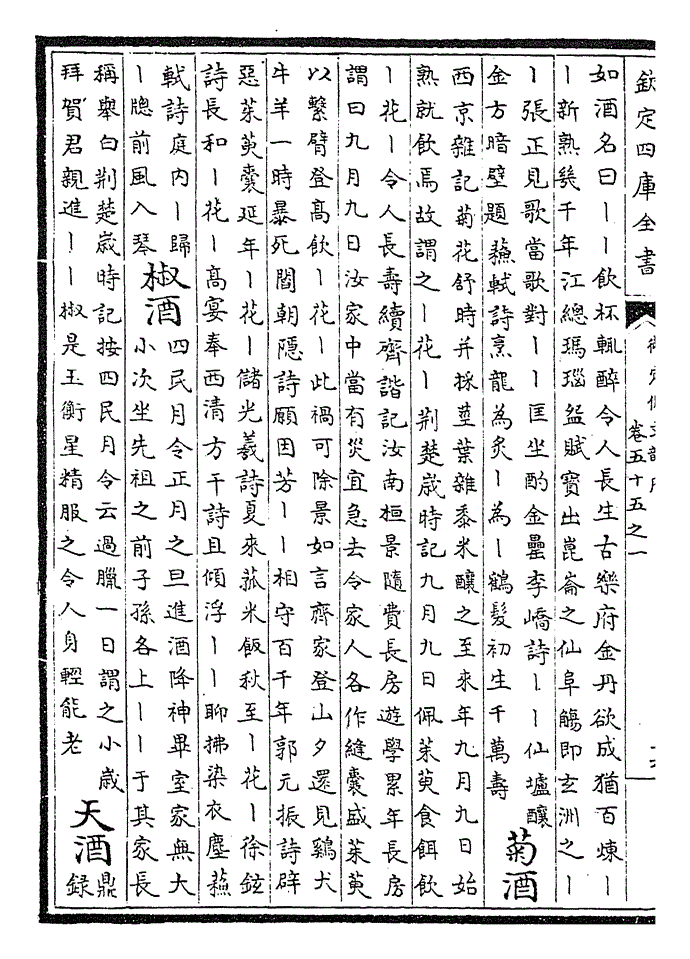 欽定四庫全書
卷五十五之一
如酒名曰｜｜飲杯輒醉令人長生古樂府金丹欲成猶百煉｜
｜新熟幾千年江總瑪瑙盌賦寶出崑崙之仙阜觴即玄洲之｜
｜張正見歌當歌對｜｜匡坐酌金罍李嶠詩｜｜仙壚釀
金方暗壁題蘇軾詩烹龍為炙｜為｜鶴髮初生千萬壽
菊酒
西京雜記菊花舒時并採莖葉雜黍米釀之至來年九月九日始
熟就飲焉故謂之｜花｜荆楚歲時記九月九日佩茱萸食餌飲
｜花｜令人長壽續齊諧記汝南桓景隨費長房遊學累年長房
謂曰九月九日汝家中當有災宜急去令家人各作縫囊盛茱萸
以繫臂登高飲｜花｜此禍可除景如言齊家登山夕還見鷄犬
牛羊一時暴死閻朝隱詩願因芳｜｜相守百千年郭元振詩辟
惡茱萸囊延年｜花｜儲光羲詩夏來菰米飯秋至｜花｜徐鉉
詩長和｜花｜高宴奉西清方干詩且傾浮｜｜聊拂染衣塵蘇
軾詩庭内｜歸
｜牕前風入琴
椒酒
四民月令正月之旦進酒降神畢室家無大
小次坐先祖之前子孫各上｜｜于其家長
稱舉白荆楚歲時記按四民月令云過臘一日謂之小歲
拜賀君親進｜｜椒是玉衡星精服之令人身輕能老
天酒
鼎
錄